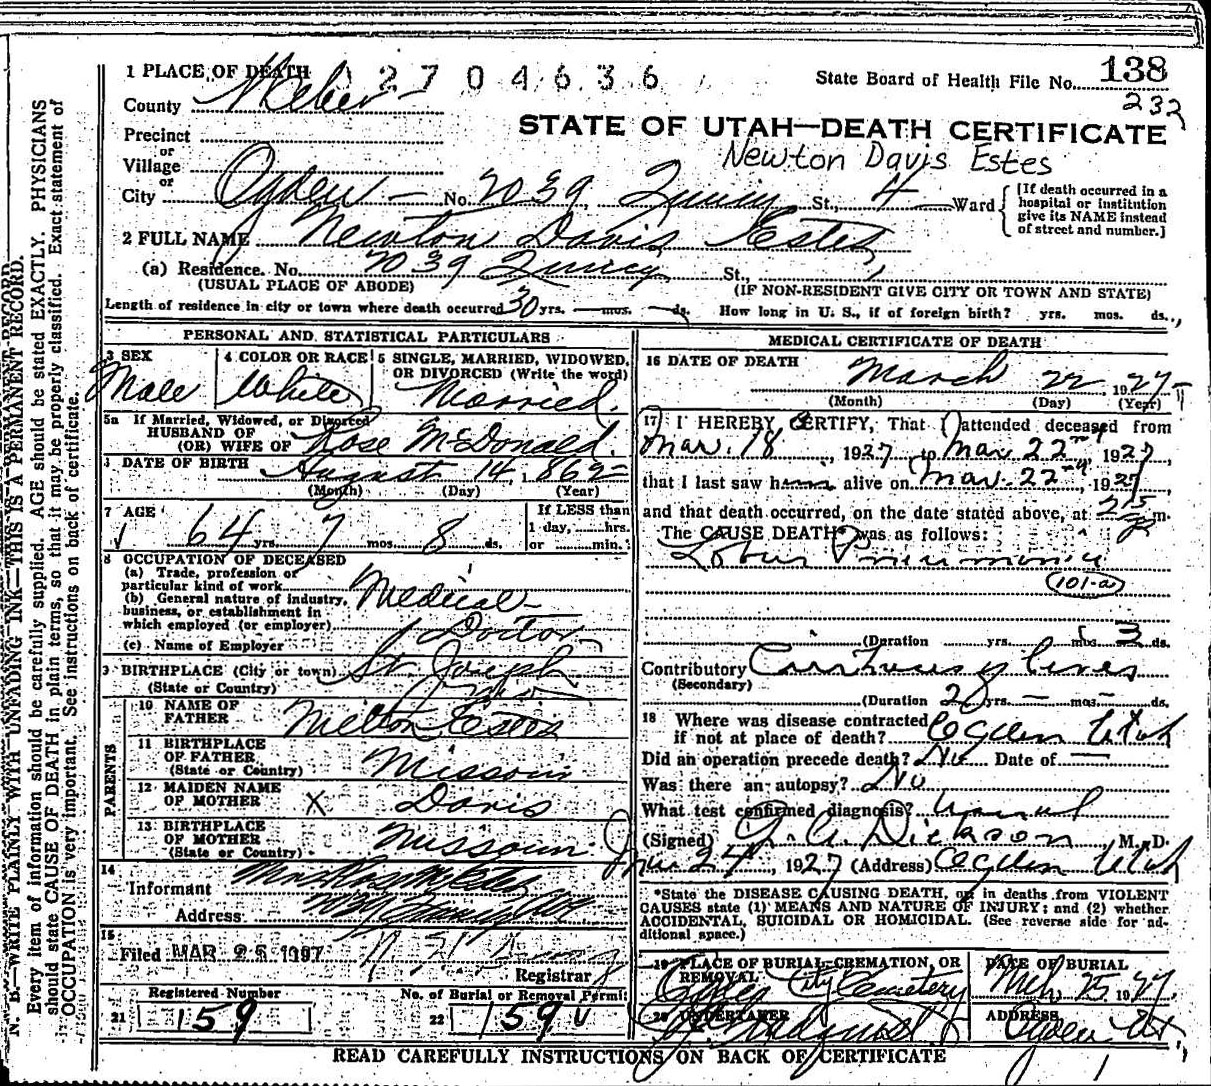 1 PLACE OF DEATH 2704636
State Board of Health File No. 138
232
County Weber
STATE OF UTAH—DEATH CERTIFICATE
Precinct
or
Village
Newton Davis Estes
or
City Ogden No. 2039 Quincy St., 4 Ward
[If death occurred in a
hospital or institution
give its NAME instead
of street and number.]
2 FULL NAME Newton Davis Estes
(a) Residence. No. 2039 Quincy St.,
(USUAL PLACE OF ABODE) (IF NON-RESIDENT GIVE CITY OR TOWN AND STATE)
Length of residence in city or town where death occurred 30 yrs. — mos. — ds. How long in U. S., if of foreign birth? yrs. mos. ds.
PERSONAL AND STATISTICAL PARTICULARS
3 SEX
Male
4 COLOR OR RACE
White
5 SINGLE, MARRIED, WIDOWED,
OR DIVORCED (Write the word)
Married.
5a If Married, Widowed, or Divorced
HUSBAND OF
(OR) WIFE OF Rose McDonald.
DATE OF BIRTH August 14, 1862
(Month) (Day) (Year)
7 AGE 64 yrs. 7 mos. 8 ds.
If LESS than
1 day, hrs.
or min.
8 OCCUPATION OF DECEASED
(a) Trade, profession or
particular kind of work
(b) General nature of industry,
business, or establishment in
which employed (or employer)
Medical
Doctor
(c) Name of Employer
9 BIRTHPLACE (City or town) St. Joseph
(State or Country) Mo
PARENTS
10 NAME OF
FATHER Milton Estes
11 BIRTHPLACE
OF FATHER
(State or Country) Missouri
12 MAIDEN NAME
OF MOTHER X Davis
13 BIRTHPLACE
OF MOTHER
(State or Country) Missouri.
14
Informant
Address
15
Filed MAR 25 1927
Registrar
Registered Number
21 159
No. of Burial or Removal Permit
22 159
MEDICAL CERTIFICATE OF DEATH
16 DATE OF DEATH March 22, 1927
(Month) (Day) (Year)
17 I HEREBY CERTIFY, That I attended deceased from
Mar. 18, 1927, to Mar. 22nd, 1927,
that I last saw him alive on Mar. 22nd, 1927,
and that death occurred, on the date stated above, at 2:15 P m.
The CAUSE DEATH was as follows:
Lobar Pneumonia
101-a
(Duration yrs. mos. 3 ds.
Contributory Cirrhosis of liver
(Secondary)
(Duration 2 yrs. — mos. — ds.
18 Where was disease contracted
if not at place of death? Ogden Utah
Did an operation precede death? No Date of —
Was there an autopsy? No
What test confirmed diagnosis?
(Signed) Dickson, M. D.
Mar 24, 1927 (Address) Ogden Utah
*State the DISEASE CAUSING DEATH, or in deaths from VIOLENT
CAUSES state (1) MEANS AND NATURE OF INJURY; and (2) whether
ACCIDENTAL, SUICIDAL OR HOMICIDAL. (See reverse side for ad-
ditional space.)
19 PLACE OF BURIAL CREMATION, OR
REMOVAL
Ogden City Cemetery
DATE OF BURIAL
Mch 25 1927
20 UNDERTAKER
ADDRESS
Ogden Ut
READ CAREFULLY INSTRUCTIONS ON BACK OF CERTIFICATE
N. B.—WRITE PLAINLY WITH UNFADING INK—THIS IS A PERMANENT RECORD.
Every item of information should be carefully supplied. AGE should be stated EXACTLY. PHYSICIANS
should state CAUSE OF DEATH in plain terms, so that it may be properly classified. Exact statement of
OCCUPATION is very important. See instructions on back of certificate.